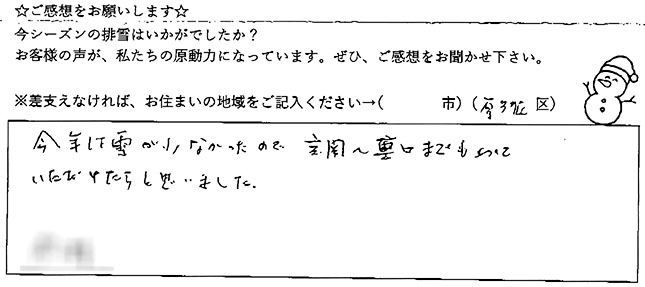 ☆ご感想をお願いします☆
今シーズンの排雪はいかがでしたか？
お客様の声が、私たちの原動力になっています。ぜひ、ご感想をお聞かせ下さい。
※差支えなければ、お住まいの地域をご記入ください→( 市) ( 区)
今年は雪が少なかったので 玄関〜 口までもやって
いただけたらと思いました.